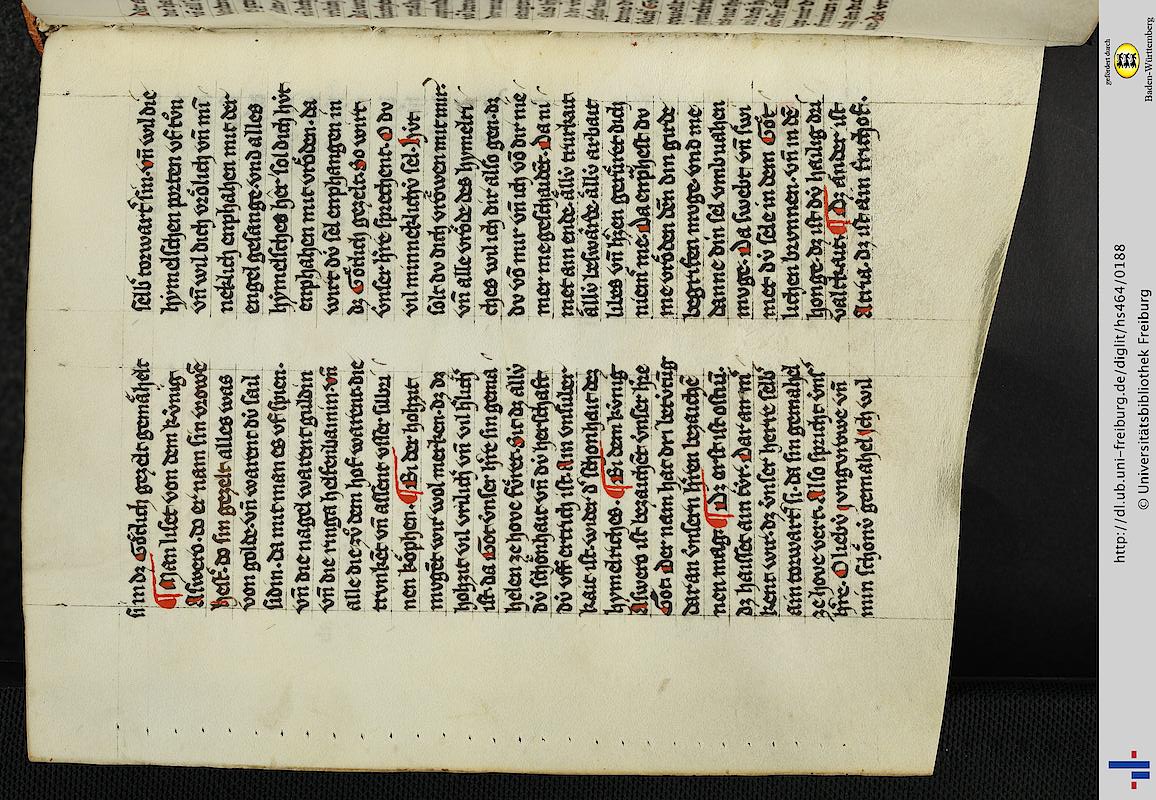 sim dz Götlich gezelt gemähelt
¶ Man liset von dem kv́nig
Aswero. do er nam sin vrowē
hest. do sin gezelt alles was
von golde. vn̄ warent dú sail
sidin. da mit man es vf spien.
vn̄ die nagel warent guldin
vn̄ die ringa helfenbainin. vn̄
alle die zů dem hof warent. die
trunkēt vn̄ assent vsser silbri
nen köphen. ¶ Bi der hohzit
mvgēt wir wol merken. dz dz
hohzit vil vrilich vn̄ vil hʼlich
ist. da Got vnser hʼre sin gemä
helen ze hove fůret. wit dz allú
dú schönhait vn̄ dú herschaft
dú vff ertrich ist. Aim vnsuber
kait ist. wider dʼ schönhait dez
hymelriches. ¶ Bi dem kúnig
Aswero ist bezaichet vnser hʼre
Got. Der neimt hat drī hervrúg
dar an vnsern hʼren bezaichē
nen mag. ¶ Dú erst ist ostiū.
dz haisset ain túr. Dar an wʼ
kent wirt. dz vnser herre selb
ain torwart si. da sin gemahel
ze hove vert. Also spricht vnsʼ
hʼre. O liebú iungvrowe vn̄
min schönú gemahel ich wil
selb torwart sin. vn̄ wil die
hymelschen porten vf tůn
vn̄ wil dich vrölich vn̄ mī
neklich enphahen mit der
engel gesange. vnd alles
hymelsches her sol dich hút
enphahen mit vröden. da
wirt dú sel enphangen in
dz Götlich gezelt. So wirt
vnser hʼre sprechent. O dv
vil minneklichú sel. Hút
solt dv dich vröwen mit mir.
vn̄ alle vröde des hymelri
ches wil ich dir also gen. dz
dv vō mir vn̄ ich vō dir nie
mer me geschaident. Da ni
met ain ende. ällú trurkait
ällú beswärde ällú arbait
libes vn̄ hʼzen gerůret dich
niem̄ me. Da enphest dv
me vröden deñ din girde
begriffen muge. vnd me
danne din sel vmbvahen
muge. Da swebt vn̄ swi
met dú sele in dem Göt
lichen brvnnen. vn̄ in dē
honge. dz ist dú hailig dri
valtkait. ¶ Dz ander ist
Atria. dz ist ain frithof.
http://dl.ub.uni-freiburg.de/diglit/hs464/0188
© Universitätsbibliothek Freiburg
gefördert durch
Baden-Württemberg